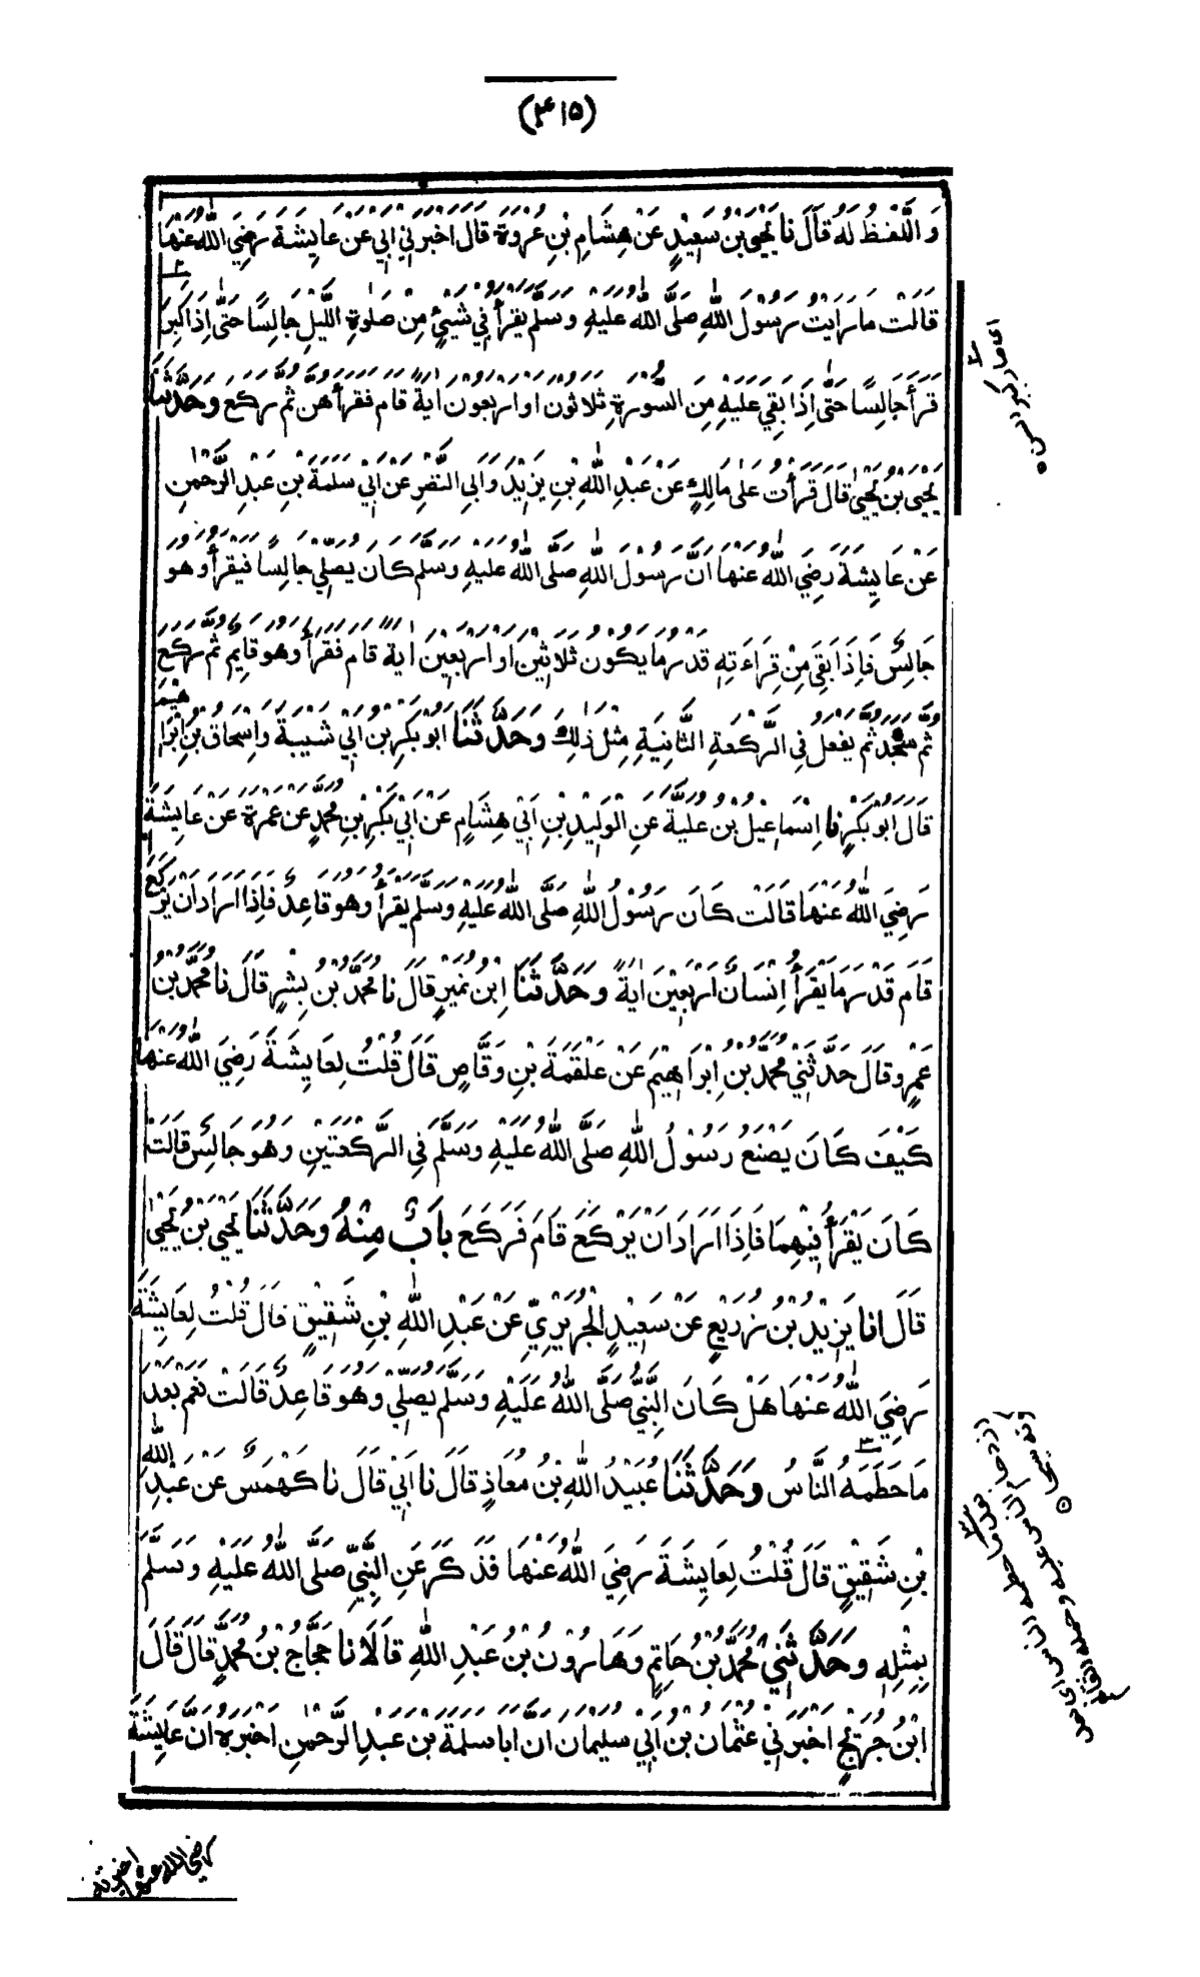 (٤١٥)
وَاللَّفْظُ لَهُ قَالَ نا يَحْيَى بْنُ سَعِيدٍ عَنْ هِشَامِ بْنِ عُرْوَةَ قَالَ اَخْبَرَنِيْ اَبِيْ عَنْ عَايِشَةَ رَضِيَ اللّٰهُ عَنْهَا
قَالَتْ مَا رَاَيْتُ رَسُوْلَ اللّٰهِ صَلَّى اللّٰهُ عَلَيْهِ وَسَلَّمَ يَقْرَأُ فِيْ شَيْئٍ مِنْ صَلٰوةِ اللَّيْلِ جَالِسًا حَتّٰى اِذَا كَبِرَ
قَرَأَ جَالِسًا حَتّٰى اِذَا بَقِيَ عَلَيْهِ مِنَ السُّوْرَةِ ثَلَاثُوْنَ اَوْ اَرْبَعُوْنَ اٰيَةً قَامَ فَقَرَأَهُنَّ ثُمَّ رَكَعَ وَحَدَّثَنَا
يَحْيَى بْنُ يَحْيٰى قَالَ قَرَأْتُ عَلٰى مَالِكٍ عَنْ عَبْدِ اللّٰهِ بْنِ يَزِيْدَ وَاَبِي النَّضْرِ عَنْ اَبِيْ سَلَمَةَ بْنِ عَبْدِ الرَّحْمٰنِ
عَنْ عَايِشَةَ رَضِيَ اللّٰهُ عَنْهَا اَنَّ رَسُوْلَ اللّٰهِ صَلَّى اللّٰهُ عَلَيْهِ وَسَلَّمَ كَانَ يُصَلِّيْ جَالِسًا فَيَقْرَأُ وَهُوَ
جَالِسٌ فَاِذَا بَقِيَ مِنْ قِرَاءَتِهِ قَدْرُ مَا يَكُوْنُ ثَلَاثِيْنَ اَوْ اَرْبَعِيْنَ اٰيَةً قَامَ فَقَرَأَ وَهُوَ قَايِمٌ ثُمَّ رَكَعَ
ثُمَّ سَجَدَ ثُمَّ يَفْعَلُ فِي الرَّكْعَةِ الثَّانِيَةِ مِثْلَ ذٰلِكَ وَحَدَّثَنَا اَبُوْ بَكْرِ بْنُ اَبِيْ شَيْبَةَ وَاِسْحَاقُ بْنُ اِبْرَاهِيْمَ
قَالَ اَبُوْ بَكْرٍ نا اِسْمَاعِيْلُ بْنُ عُلَيَّةَ عَنِ الْوَلِيْدِ بْنِ اَبِيْ هِشَامٍ عَنْ اَبِيْ بَكْرِ بْنِ مُحَمَّدٍ عَنْ عَمْرَةَ عَنْ عَايِشَةَ
رَضِيَ اللّٰهُ عَنْهَا قَالَتْ كَانَ رَسُوْلُ اللّٰهِ صَلَّى اللّٰهُ عَلَيْهِ وَسَلَّمَ يَقْرَأُ وَهُوَ قَاعِدٌ فَاِذَا اَرَادَ اَنْ يَرْكَعَ
قَامَ قَدْرَ مَا يَقْرَأُ اِنْسَانٌ اَرْبَعِيْنَ اٰيَةً وَحَدَّثَنَا ابْنُ نُمَيْرٍ قَالَ نا مُحَمَّدُ بْنُ بِشْرٍ قَالَ نا مُحَمَّدُ بْنُ
عَمْرٍو قَالَ حَدَّثَنِيْ مُحَمَّدُ بْنُ اِبْرَاهِيْمَ عَنْ عَلْقَمَةَ بْنِ وَقَّاصٍ قَالَ قُلْتُ لِعَايِشَةَ رَضِيَ اللّٰهُ عَنْهَا
كَيْفَ كَانَ يَصْنَعُ رَسُوْلُ اللّٰهِ صَلَّى اللّٰهُ عَلَيْهِ وَسَلَّمَ فِي الرَّكْعَتَيْنِ وَهُوَ جَالِسٌ قَالَتْ
كَانَ يَقْرَأُ فِيْهِمَا فَاِذَا اَرَادَ اَنْ يَرْكَعَ قَامَ فَرَكَعَ بَابٌ مِنْهُ وَحَدَّثَنَا يَحْيَى بْنُ يَحْيٰى
قَالَ انا يَزِيْدُ بْنُ زُرَيْعٍ عَنْ سَعِيْدٍ الْجُرَيْرِيِّ عَنْ عَبْدِ اللّٰهِ بْنِ شَقِيْقٍ قَالَ قُلْتُ لِعَايِشَةَ
رَضِيَ اللّٰهُ عَنْهَا هَلْ كَانَ النَّبِيُّ صَلَّى اللّٰهُ عَلَيْهِ وَسَلَّمَ يُصَلِّيْ وَهُوَ قَاعِدٌ قَالَتْ نَعَمْ بَعْدَ
مَا حَطَمَهُ النَّاسُ وَحَدَّثَنَا عُبَيْدُ اللّٰهِ بْنُ مُعَاذٍ قَالَ نا اَبِيْ قَالَ نا كَهْمَسٌ عَنْ عَبْدِ اللّٰهِ
بْنِ شَقِيْقٍ قَالَ قُلْتُ لِعَايِشَةَ رَضِيَ اللّٰهُ عَنْهَا فَذَكَرَ عَنِ النَّبِيِّ صَلَّى اللّٰهُ عَلَيْهِ وَسَلَّمَ
بِمِثْلِهِ وَحَدَّثَنِيْ مُحَمَّدُ بْنُ حَاتِمٍ وَهَارُوْنُ بْنُ عَبْدِ اللّٰهِ قَالَا نا حَجَّاجُ بْنُ مُحَمَّدٍ قَالَ قَالَ
ابْنُ جُرَيْجٍ اَخْبَرَنِيْ عُثْمَانُ بْنُ اَبِيْ سُلَيْمَانَ اَنَّ اَبَا سَلَمَةَ بْنَ عَبْدِ الرَّحْمٰنِ اَخْبَرَهُ اَنَّ عَايِشَةَ
رضي الله عنها اخبرته